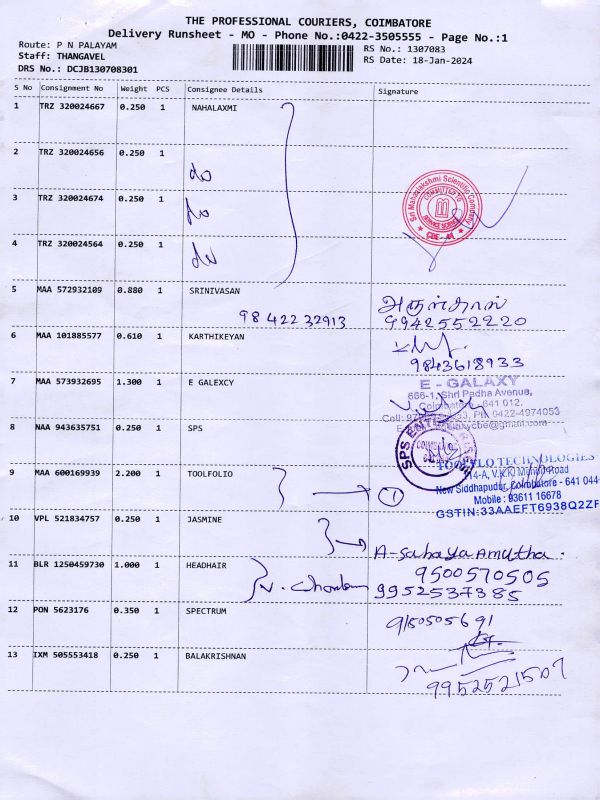 THE PROFESSIONAL COURIERS, COIMBATORE
Delivery Runsheet - MO - Phone No.:0422-3505555 - Page No.:1
Route: P N PALAYAM
RS No.: 1307083
Staff: THANGAVEL
RS Date: 18-Jan-2024
DRS No.: DCJB130708301
S No Consignment No Weight PCS Consignee Details Signature
1 TRZ 320024667 0.250 1 NAHALAXMI
2 TRZ 320024656 0.250 1
do
3 TRZ 320024674 0.250 1
do
Sri Mahalakshmi Scientific Company
COMMITTED TO SERVICE SCIENCE
CBE-44
4 TRZ 320024564 0.250 1
do
5 MAA 572932109 0.880 1 SRINIVASAN
98422 32913
அருள்தாஸ்
9942552220
6 MAA 101885577 0.610 1 KARTHIKEYAN
9843618933
7 MAA 573932695 1.300 1 E GALEXCY
E - GALAXY
666-1, Shri Padha Avenue,
Coimbatore - 641 012.
Ph: 0422-4974053
8 NAA 943635751 0.250 1 SPS
SPS ENTERPRISES
9 MAA 600169939 2.200 1 TOOLFOLIO
1
TOOLFLO TECHNOLOGIES
114-A, V.K.K. Menon Road
New Siddhapudur, Coimbatore - 641 044
Mobile : 93611 16678
GSTIN:33AAEFT6938Q2ZF
10 VPL 521834757 0.250 1 JASMINE
A-Sahaya Amutha.
11 BLR 1250459730 1.000 1 HEADHAIR
9500570505
9952537385
12 PON 5623176 0.350 1 SPECTRUM
9150505691
13 IXM 505553418 0.250 1 BALAKRISHNAN
9952521507